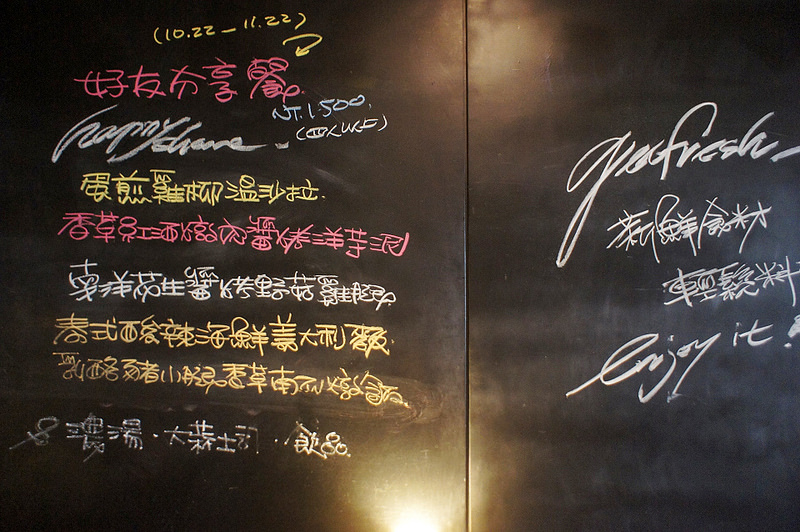 (10.22 – 11.22)
好友分享饗
NT.1.500.
happy share
(四人以上)
蛋煎雞柳溫沙拉
香草紅酒燉肉醬佐洋芋泥
南洋花生醬烤野菇雞腿
泰式酸辣海鮮義大利麵
乳酪豬小腿香草南瓜燉飯
濃湯.大蒜土司.飲品
go fresh
新鮮食材
輕鬆料
enjoy it!